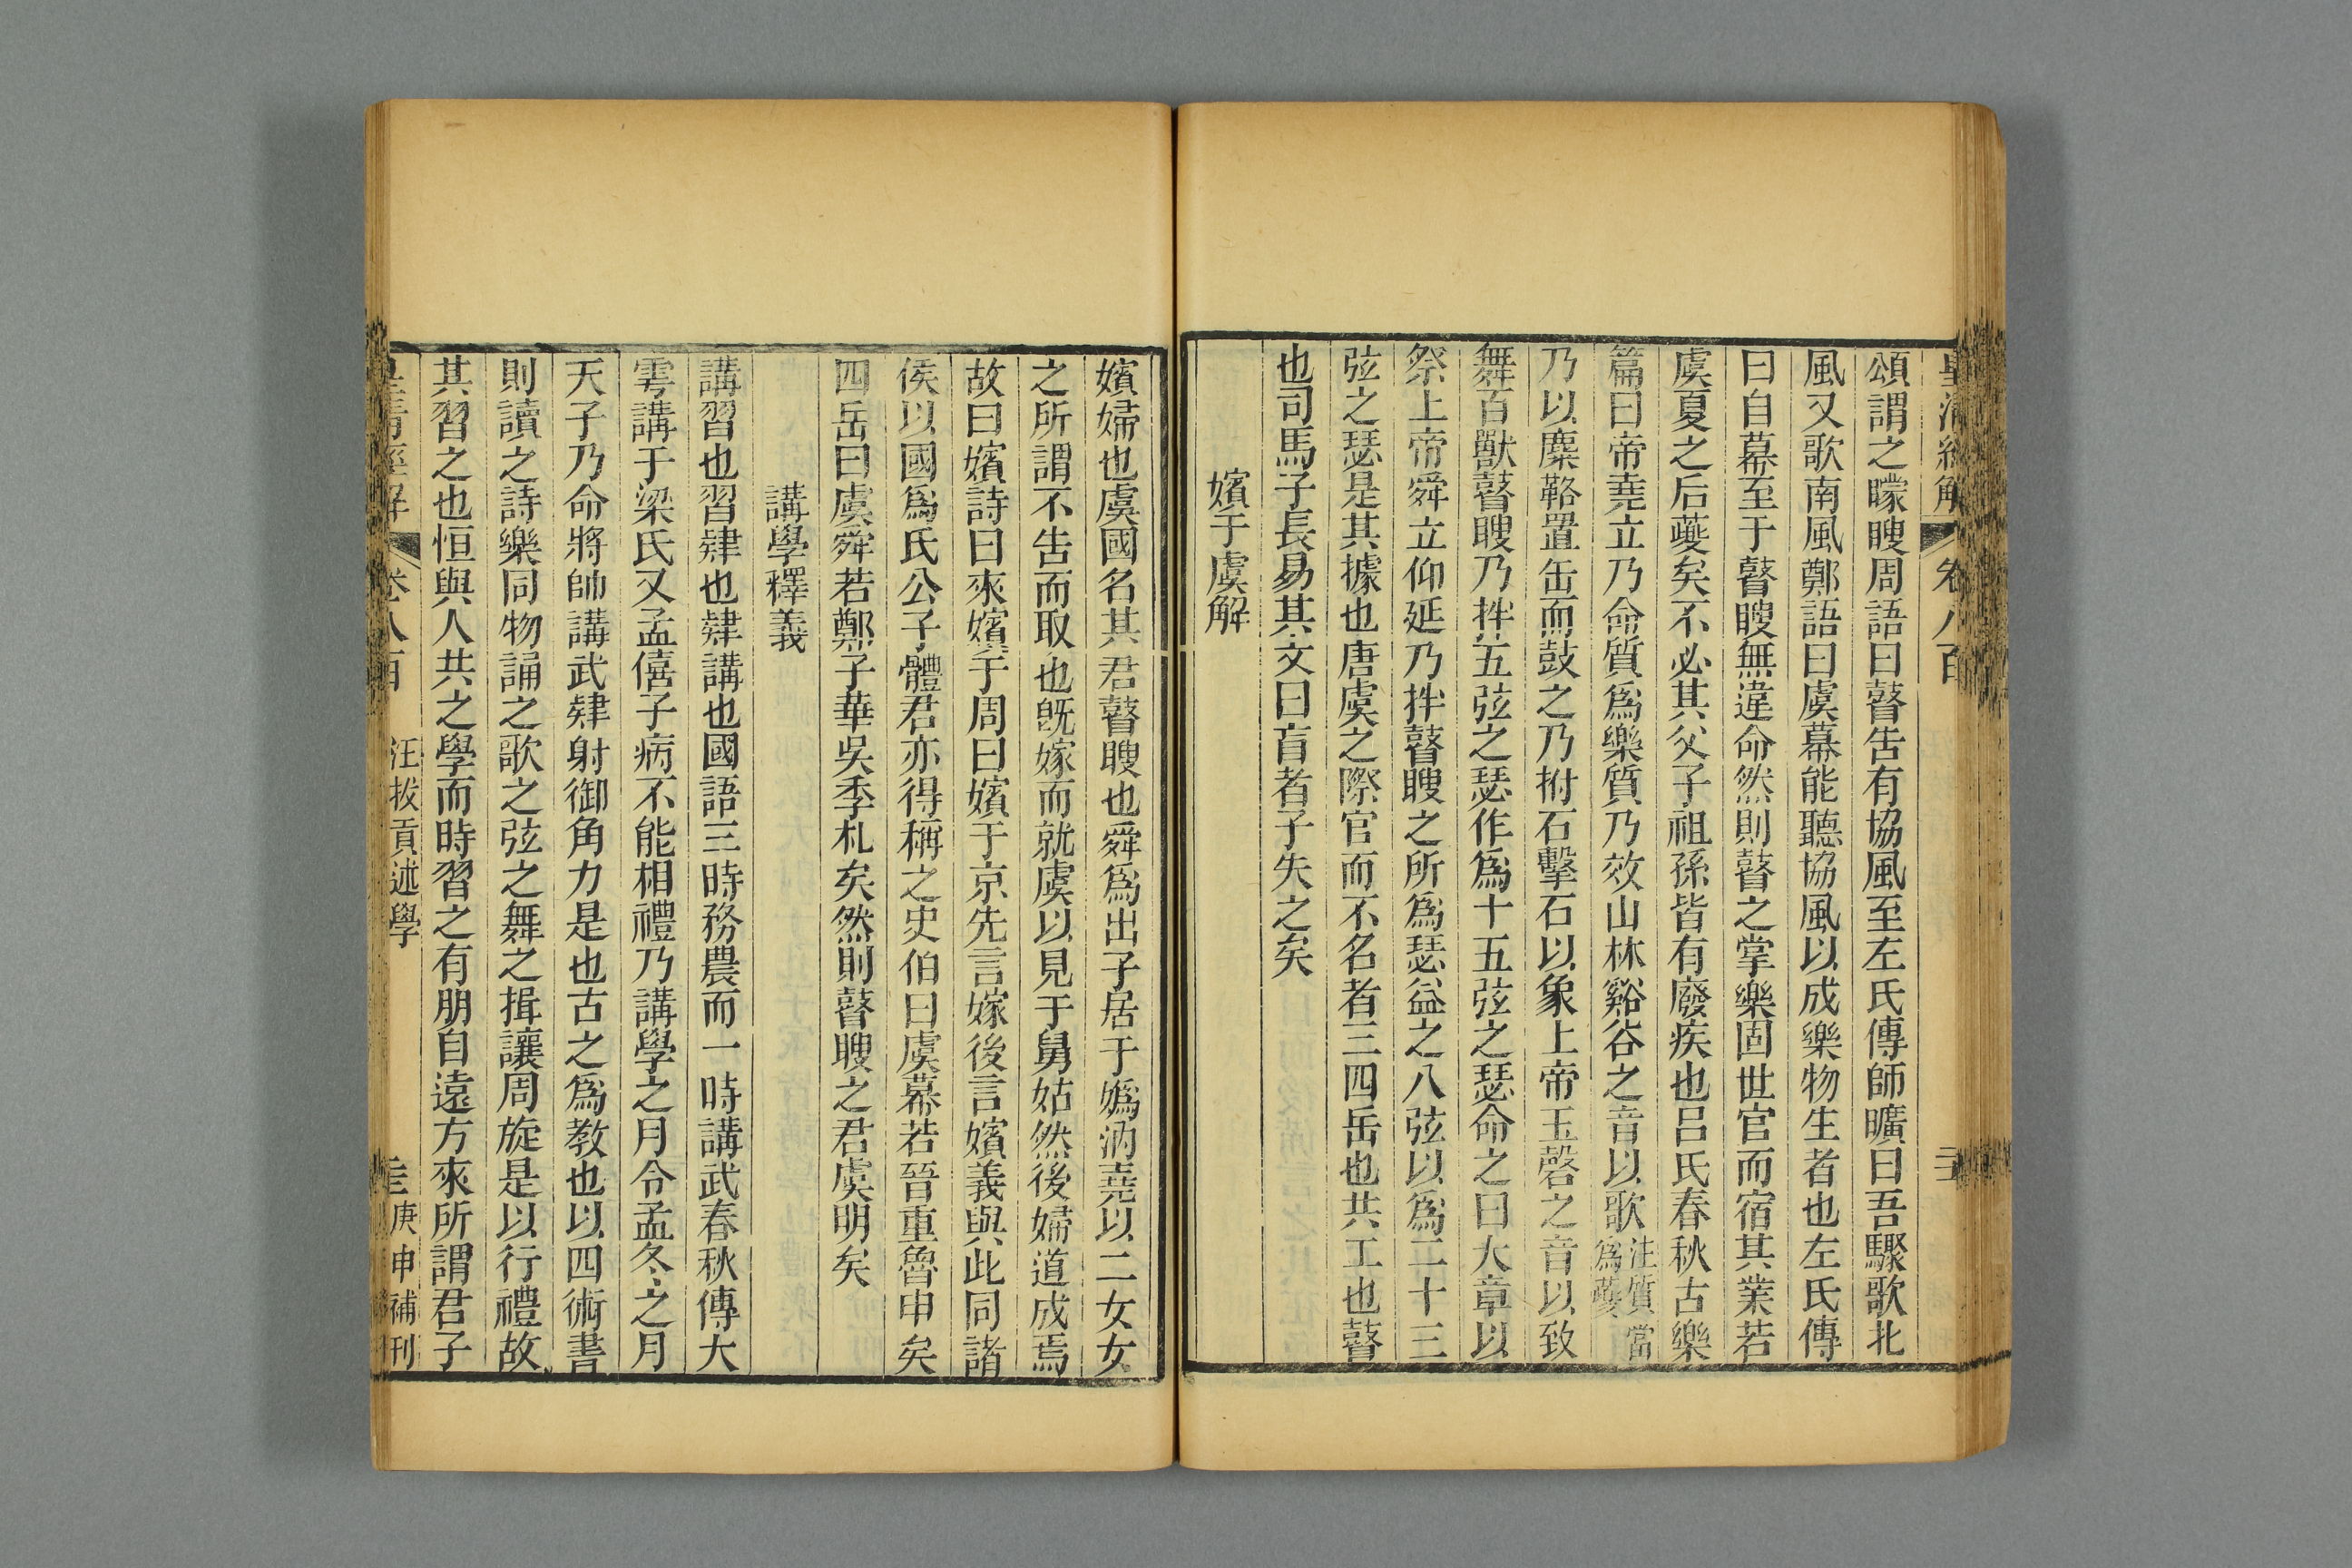 皇清經解 卷八百
頌謂之矇瞍周語曰瞽告有協風至左氏傳師曠曰吾驟歌北
風又歌南風鄭語曰虞幕能聽協風以成樂物生者也左氏傳
曰自幕至于瞽瞍無違命然則瞽之掌樂固世官而宿其業若
虞夏之后夔矣不必其父子祖孫皆有廢疾也呂氏春秋古樂
篇曰帝堯立乃命質爲樂質乃效山林谿谷之音以歌注質當爲夔
乃以麋䩭置缶而鼓之乃拊石擊石以象上帝玉磬之音以致
舞百獸瞽瞍乃拌五弦之瑟作爲十五弦之瑟命之曰大章以
祭上帝舜立仰延乃拌瞽瞍之所爲瑟益之八弦以爲二十三
弦之瑟是其據也唐虞之際官而不名者三四岳也共工也瞽
也司馬子長易其文曰盲者子失之矣
嬪于虞解
嬪婦也虞國名其君瞽瞍也舜爲出子居于嬀汭堯以二女女
之所謂不告而取也旣嫁而就虞以見于舅姑然後婦道成焉
故曰嬪詩曰來嬪于周曰嬪于京先言嫁後言嬪義與此同諸
侯以國爲氏公子體君亦得稱之史伯曰虞幕若晉重魯申矣
四岳曰虞舜若鄭子華吳季札矣然則瞽瞍之君虞明矣
講學釋義
講習也習肄也肄講也國語三時務農而一時講武春秋傳大
雩講于梁氏又孟僖子病不能相禮乃講學之月令孟冬之月
天子乃命將帥講武肄射御角力是也古之爲教也以四術書
則讀之詩樂同物誦之歌之弦之舞之揖讓周旋是以行禮故
其習之也恒與人共之學而時習之有朋自遠方來所謂君子
皇清經解 卷八百 汪拔貢述學 庚申補刊